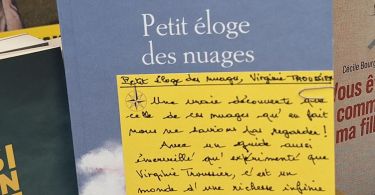 Petit éloge
des nuages
Petit éloge des nuages, Virginie TROUSSIER
Une vraie découverte que
celle de ces nuages qu'en fait
nous ne savions pas regarder !
Avec un guide aussi
émerveillé qu'expérimenté que
Virginie Troussier, c'est un
monde d'une richesse infinie
Cécile Bourg
Vous ê
comm
ma fil